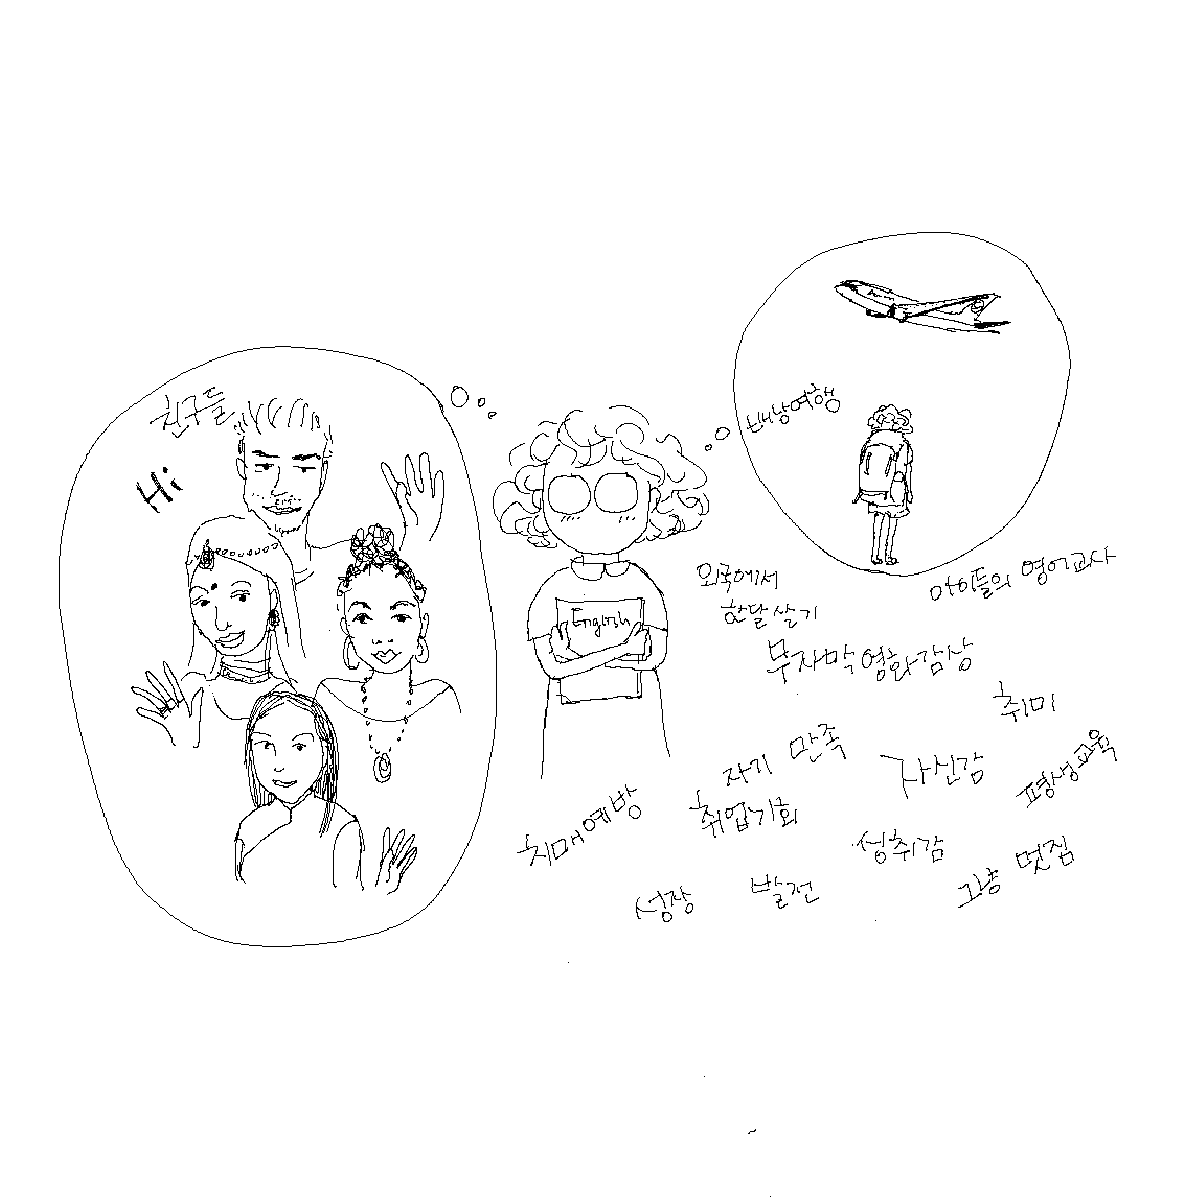 친구들
Hi
배낭여행
English
외국에서
한달 살기
아이들의 영어교사
무자막 영화감상
취미
자기 만족
자신감
평생교육
치매예방
취업기회
성취감
그냥 멋짐
성장
발전